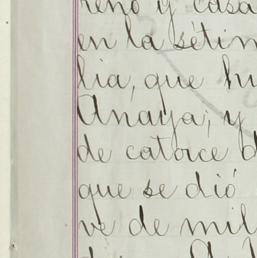 reno y casa
en la sétim
lia, que hu
Anaya; y
de catorce d
que se dió
ve de mil